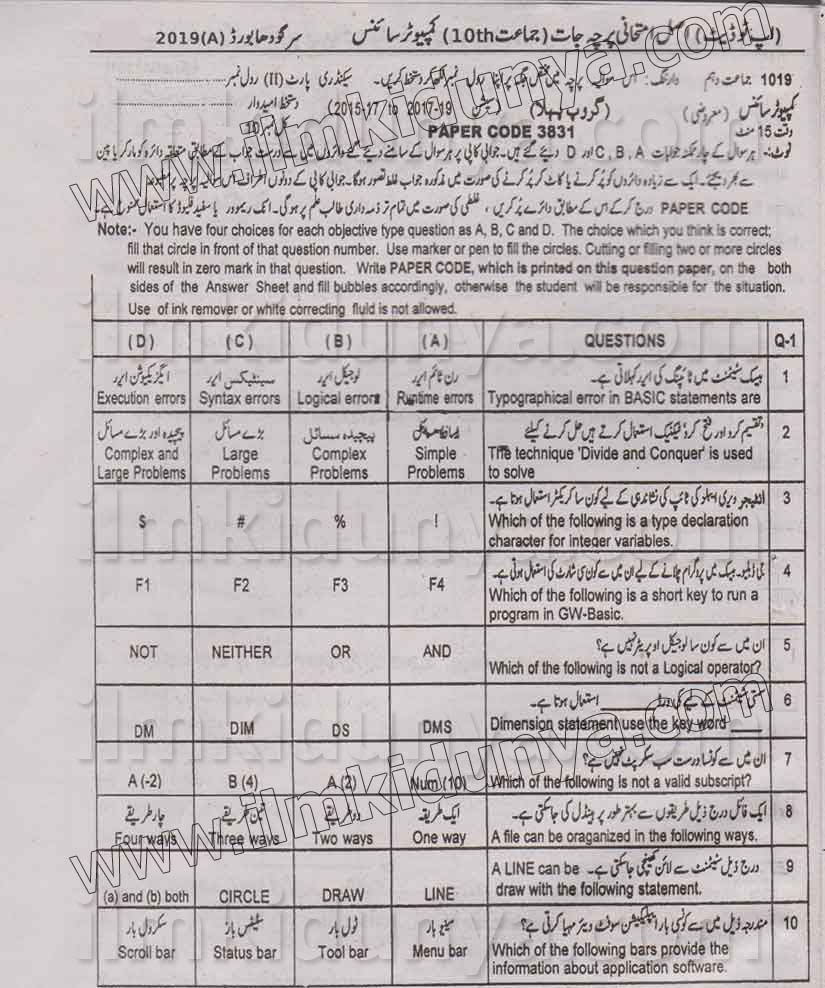 (اپ ٹو ڈیٹ) اصل امتحانی پرچہ جات (جماعت 10th) کمپیوٹر سائنس سرگودھا بورڈ 2019(A)
1019 جماعت دہم وارننگ: اس سوالیہ پرچہ میں پر اپنا رول نمبر لکھ کر دستخط کریں۔ سیکنڈری پارٹ (II) رول نمبر
کمپیوٹر سائنس (معروضی) (گروپ پہلا) (سیشن 2015-17 to 2017-19) دستخط امیدوار
وقت 15 منٹ PAPER CODE 3831 کل نمبر 10
نوٹ:- ہر سوال کے چار ممکنہ جوابات C, B, A اور D دیئے گئے ہیں۔ جوابی کاپی پر ہر سوال کے سامنے دیئے گئے دائروں میں سے درست جواب کے مطابق متعلقہ دائرہ کو مارکر یا پین
سے بھر دیجئے۔ ایک سے زیادہ دائروں کو پُر کرنے یا کاٹ کر پُر کرنے کی صورت میں مذکورہ جواب غلط تصور ہوگا۔ جوابی کاپی کے دونوں اطراف اس سوالیہ پرچہ پر مطبوعہ
PAPER CODE درج کر کے اس کے مطابق دائرے پُر کریں، غلطی کی صورت میں تمام تر ذمہ داری طالب علم پر ہوگی۔ انک ریموور یا سفید فلیوڈ کا استعمال ممنوع ہے۔
Note:- You have four choices for each objective type question as A, B, C and D. The choice which you think is correct;
fill that circle in front of that question number. Use marker or pen to fill the circles. Cutting or filling two or more circles
will result in zero mark in that question. Write PAPER CODE, which is printed on this question paper, on the both
sides of the Answer Sheet and fill bubbles accordingly, otherwise the student will be responsible for the situation.
Use of ink remover or white correcting fluid is not allowed.
(D) (C) (B) (A) QUESTIONS Q-1
ایگزیکیوشن ایرر سینٹیکس ایرر لوجیکل ایرر رن ٹائم ایرر بیسک سٹیٹمنٹ میں ٹائپنگ کی ایرر کہلاتی ہے۔ 1
Execution errors Syntax errors Logical errors Runtime errors Typographical error in BASIC statements are
پیچیدہ اور بڑے مسائل بڑے مسائل پیچیدہ مسائل سادہ مسائل تقسیم کرو اور فتح کرو ٹیکنیک استعمال کرتے ہیں حل کرنے کیلئے 2
Complex and Large Complex Simple The technique 'Divide and Conquer' is used
Large Problems Problems Problems Problems to solve
انٹیجر ویری ایبلز کی ٹائپ کی نشاندہی کے لیے کون سا کریکٹر استعمال ہوتا ہے۔ 3
$ # % ! Which of the following is a type declaration
character for integer variables.
جی ڈبلیو۔ بیسک میں پروگرام چلانے کے لیے ان میں سے کون سی شارٹ کی استعمال ہوتی ہے۔ 4
F1 F2 F3 F4 Which of the following is a short key to run a
program in GW-Basic.
ان میں سے کون سا لوجیکل اوپریٹر نہیں ہے؟ 5
NOT NEITHER OR AND Which of the following is not a Logical operator?
سٹیٹمنٹ کے لیے کی ورڈ ______ استعمال ہوتا ہے۔ 6
DM DIM DS DMS Dimension statement use the key word ____
ان میں سے کونسا درست سب سکرپٹ نہیں ہے؟ 7
A (-2) B (4) A (2) Num (10) Which of the following is not a valid subscript?
چار طریقے تین طریقے دو طریقے ایک طریقہ ایک فائل درج ذیل طریقوں سے بہتر طور پر ہینڈل کی جاسکتی ہے۔ 8
Four ways Three ways Two ways One way A file can be oraganized in the following ways.
A LINE can be درج ذیل سٹیٹمنٹ سے لائن کھینچی جاسکتی ہے۔ 9
(a) and (b) both CIRCLE DRAW LINE draw with the following statement.
سکرول بار سٹیٹس بار ٹول بار مینیو بار مندرجہ ذیل میں سے کونسی بار ایپلیکیشن سوفٹ ویئر مہیا کرتی ہے؟ 10
Scroll bar Status bar Tool bar Menu bar Which of the following bars provide the
information about application software.
www.ilmkidunya.com
www.ilmkidunya.com
ilmkidunya.com
ilmkidunya.com
ilmkidunya.com
ilmkidunya.com
ilmkidunya.com